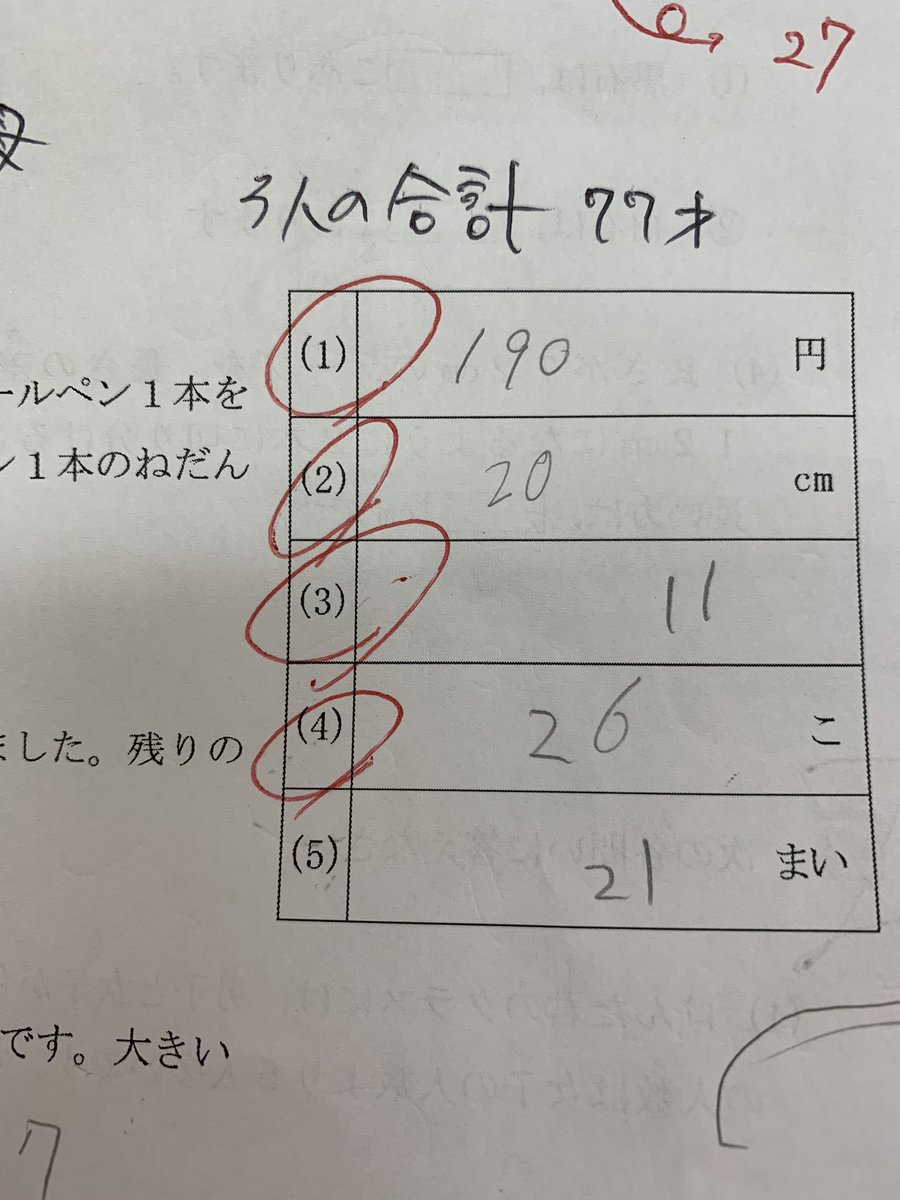 27
3人の合計 77才
(1) 190 円
ールペン1本を
ン1本のねだん
(2) 20 cm
(3) 11
(4) 26 こ
ました。残りの
(5) 21 まい
です。大きい
7